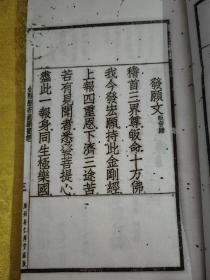 發願文
稽首三界尊皈命十方佛
我今發宏願持此金剛經
上報四重恩下濟三途苦
若有見聞者悉發菩提心
盡此一報身同生極樂國